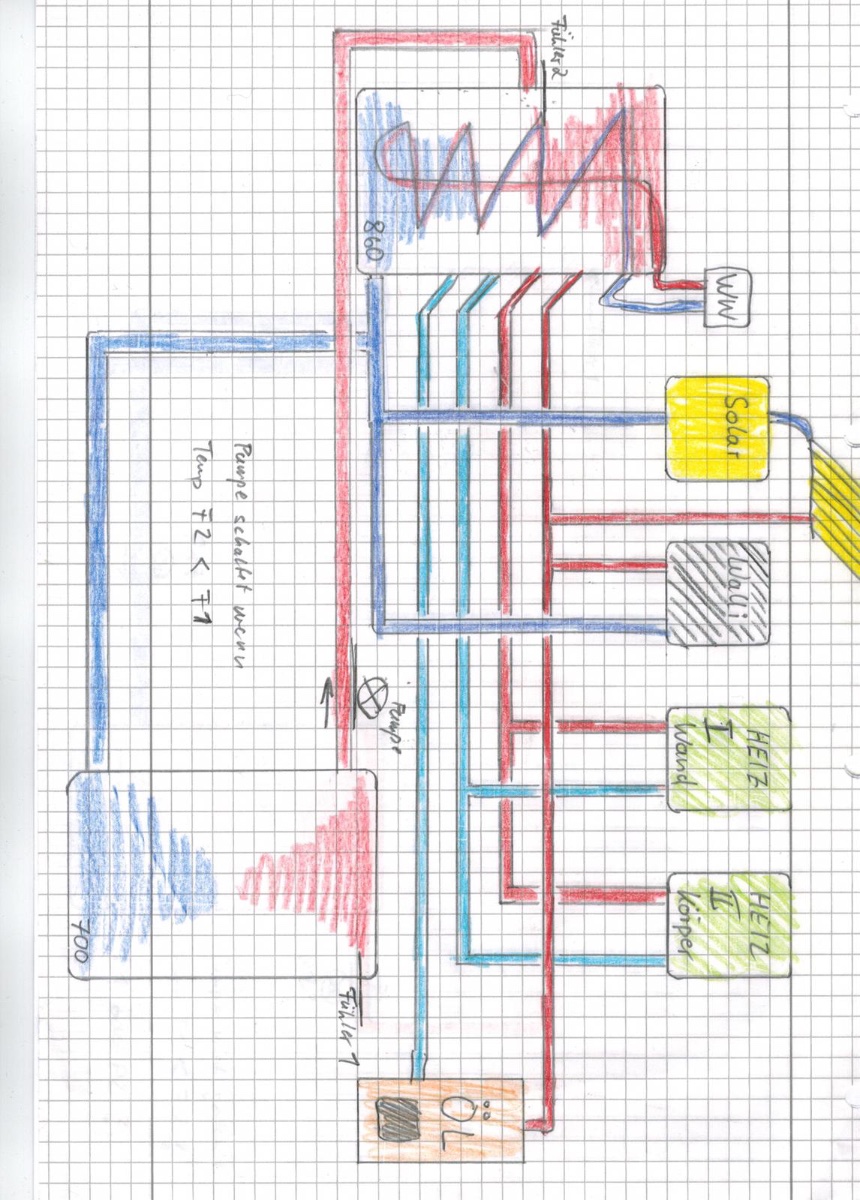 WW
Solar
Walli
HEIZ
I
Wand
HEIZ
II
Körper
Fühler 2
ÖL
860
Pumpe
Fühler 1
Pumpe schaltet wenn
Temp F2 < F1
700